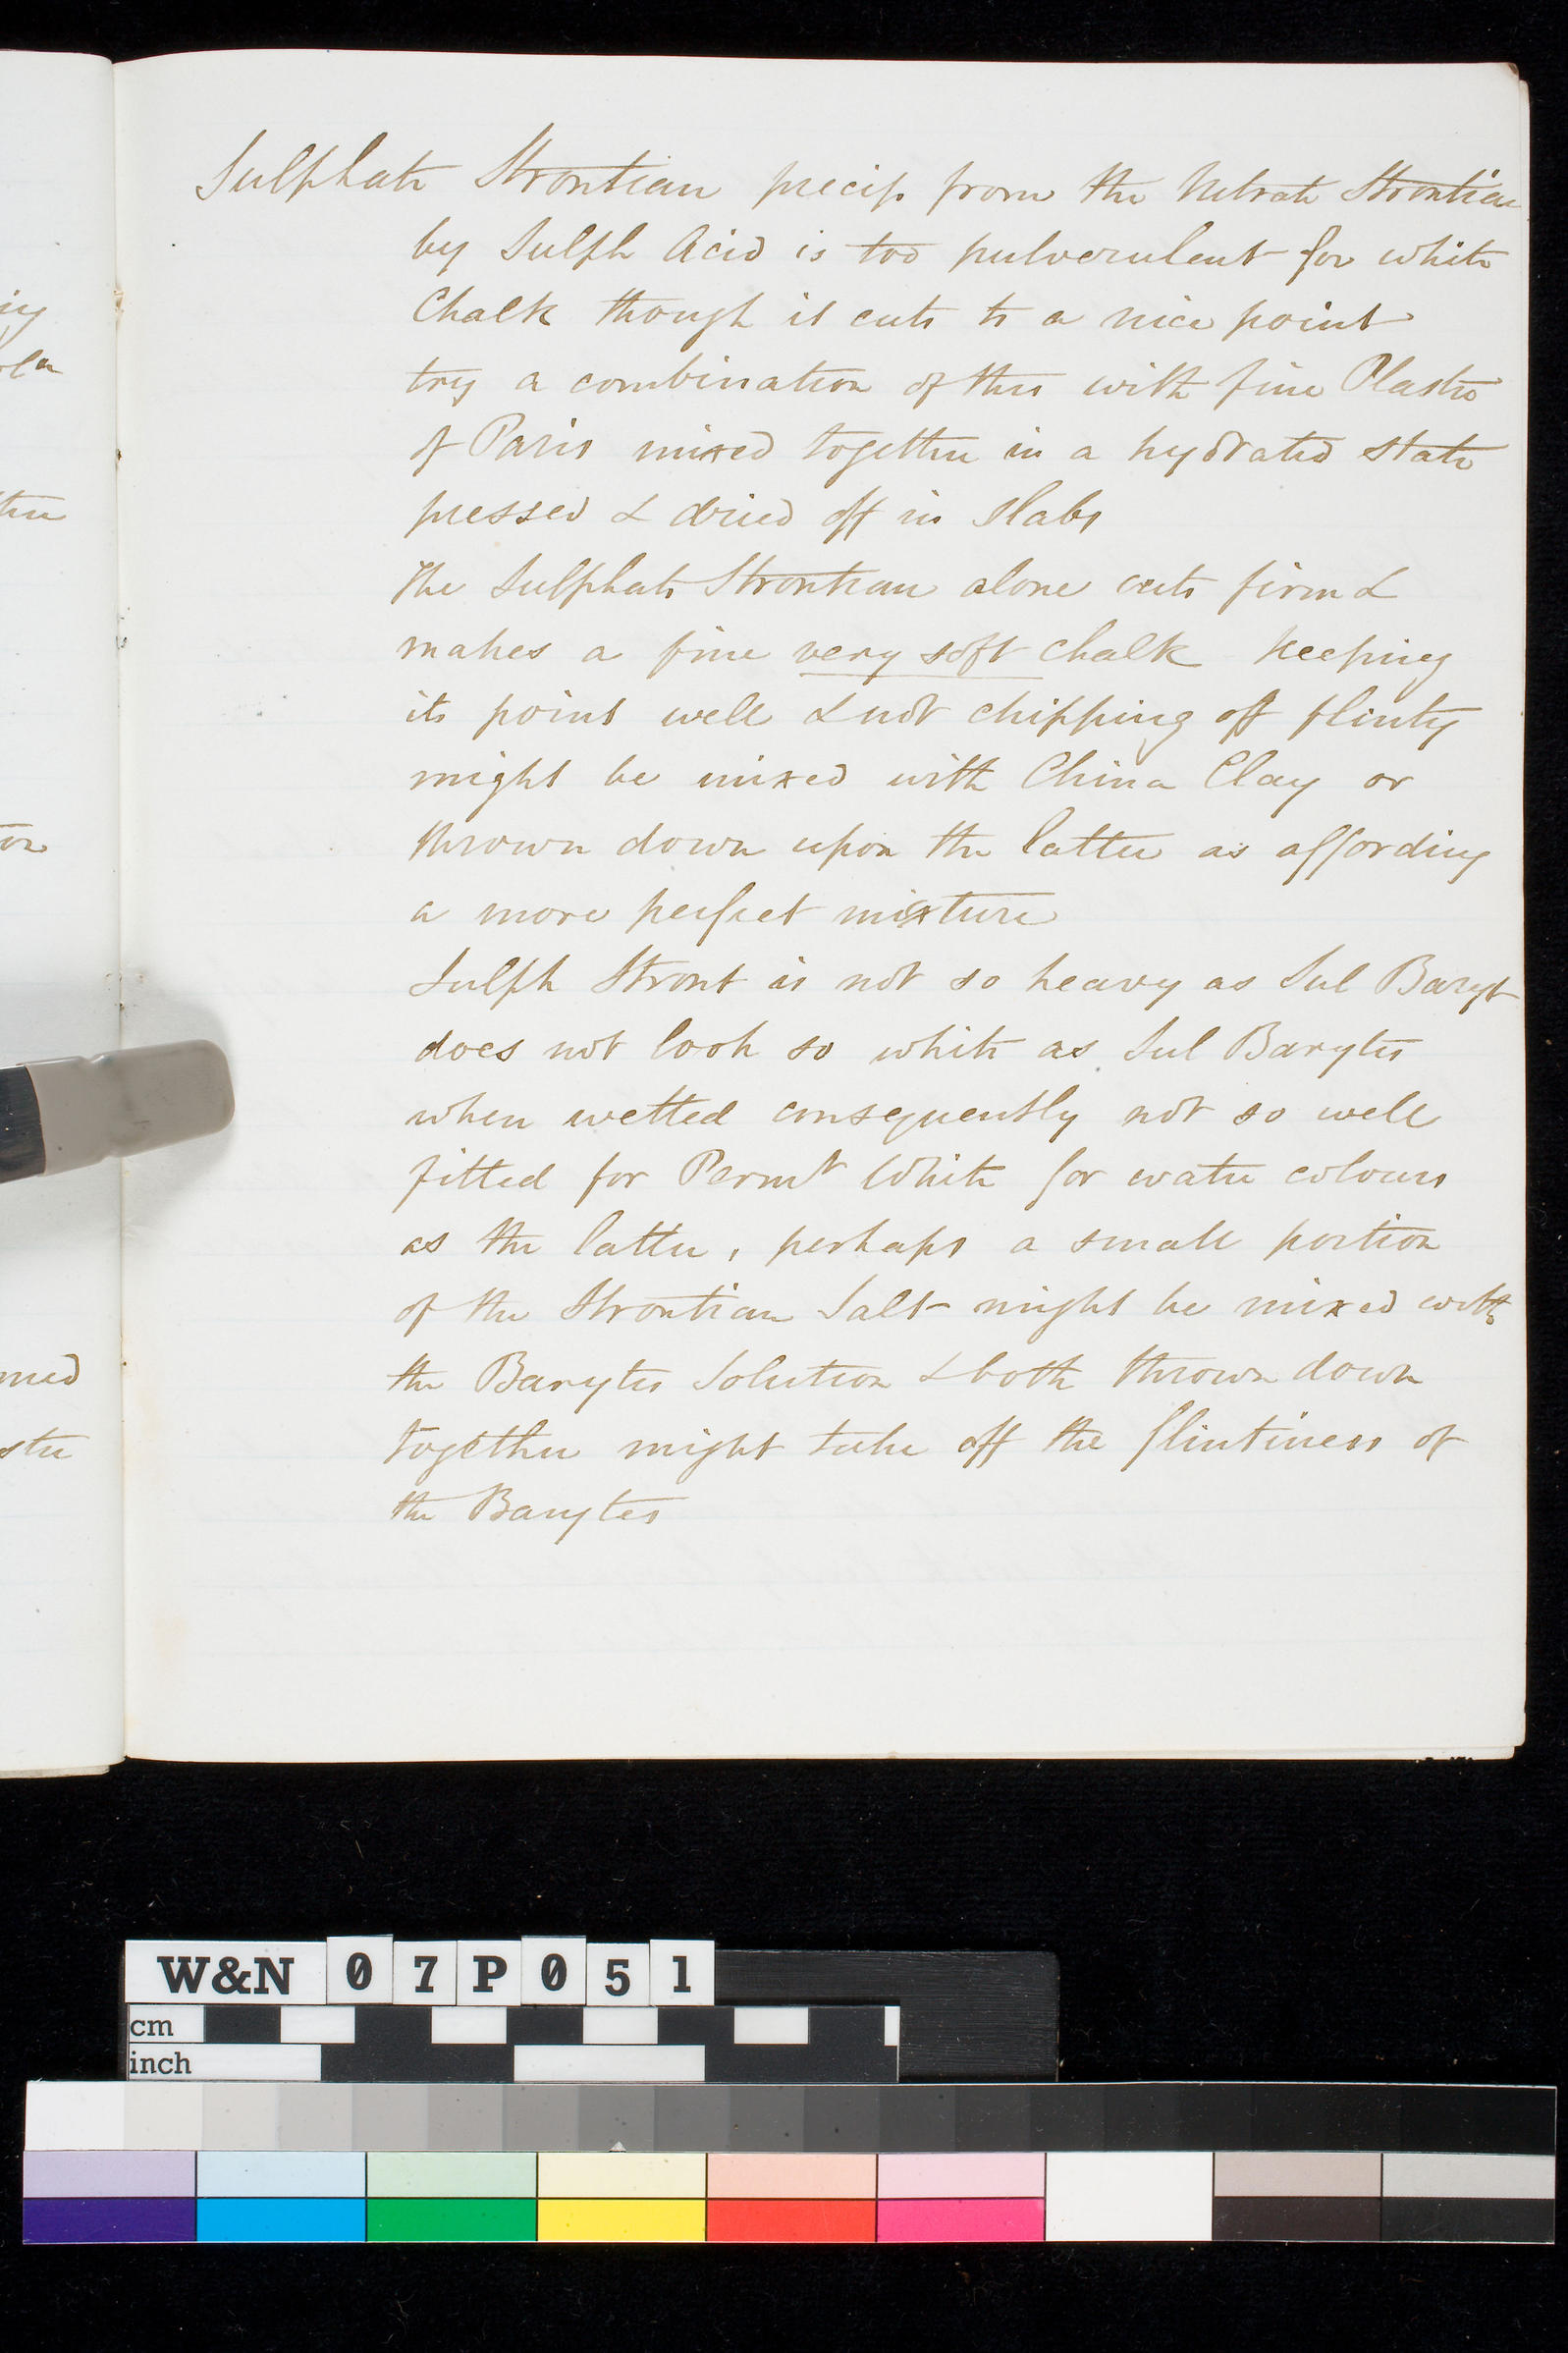 Sulphate Strontian precip from the Nitrate Strontian
by Sulph Acid is too pulverulent for white
Chalk though it cuts to a nice point
try a combination of this with fine Plaster
of Paris mixed together in a hydrated state
pressed & dried off in slabs
The Sulphate Strontian alone cuts firm &
makes a fine very soft chalk keeping
its point well & not chipping off flinty
might be mixed with China Clay or
thrown down upon the latter as affording
a more perfect mixture
Sulph Stront is not so heavy as Sul Baryt
does not look so white as Sul Barytes
when wetted consequently not so well
fitted for Permt White for water colours
as the latter, perhaps a small portion
of the Strontian Salt might be mixed with
the Barytes Solution & both thrown down
together might take off the flintiness of
the Barytes
W&N 07P051
cm
inch